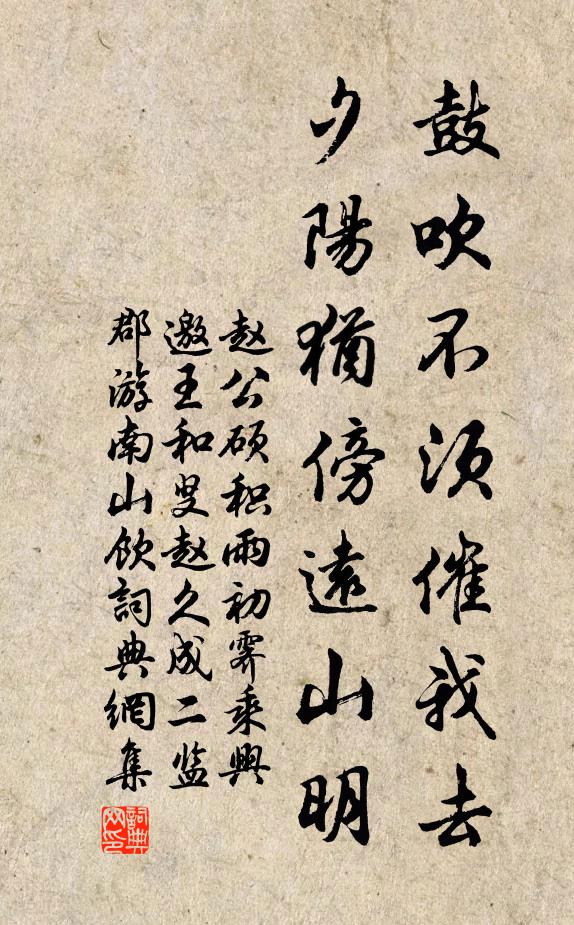 鼓吹不須催我去
夕陽猶傍遠山明
赵公硕积雨初霽乘興
邀王和叟赵久成二监
郡游南山飲詞典網集
詞典
网印